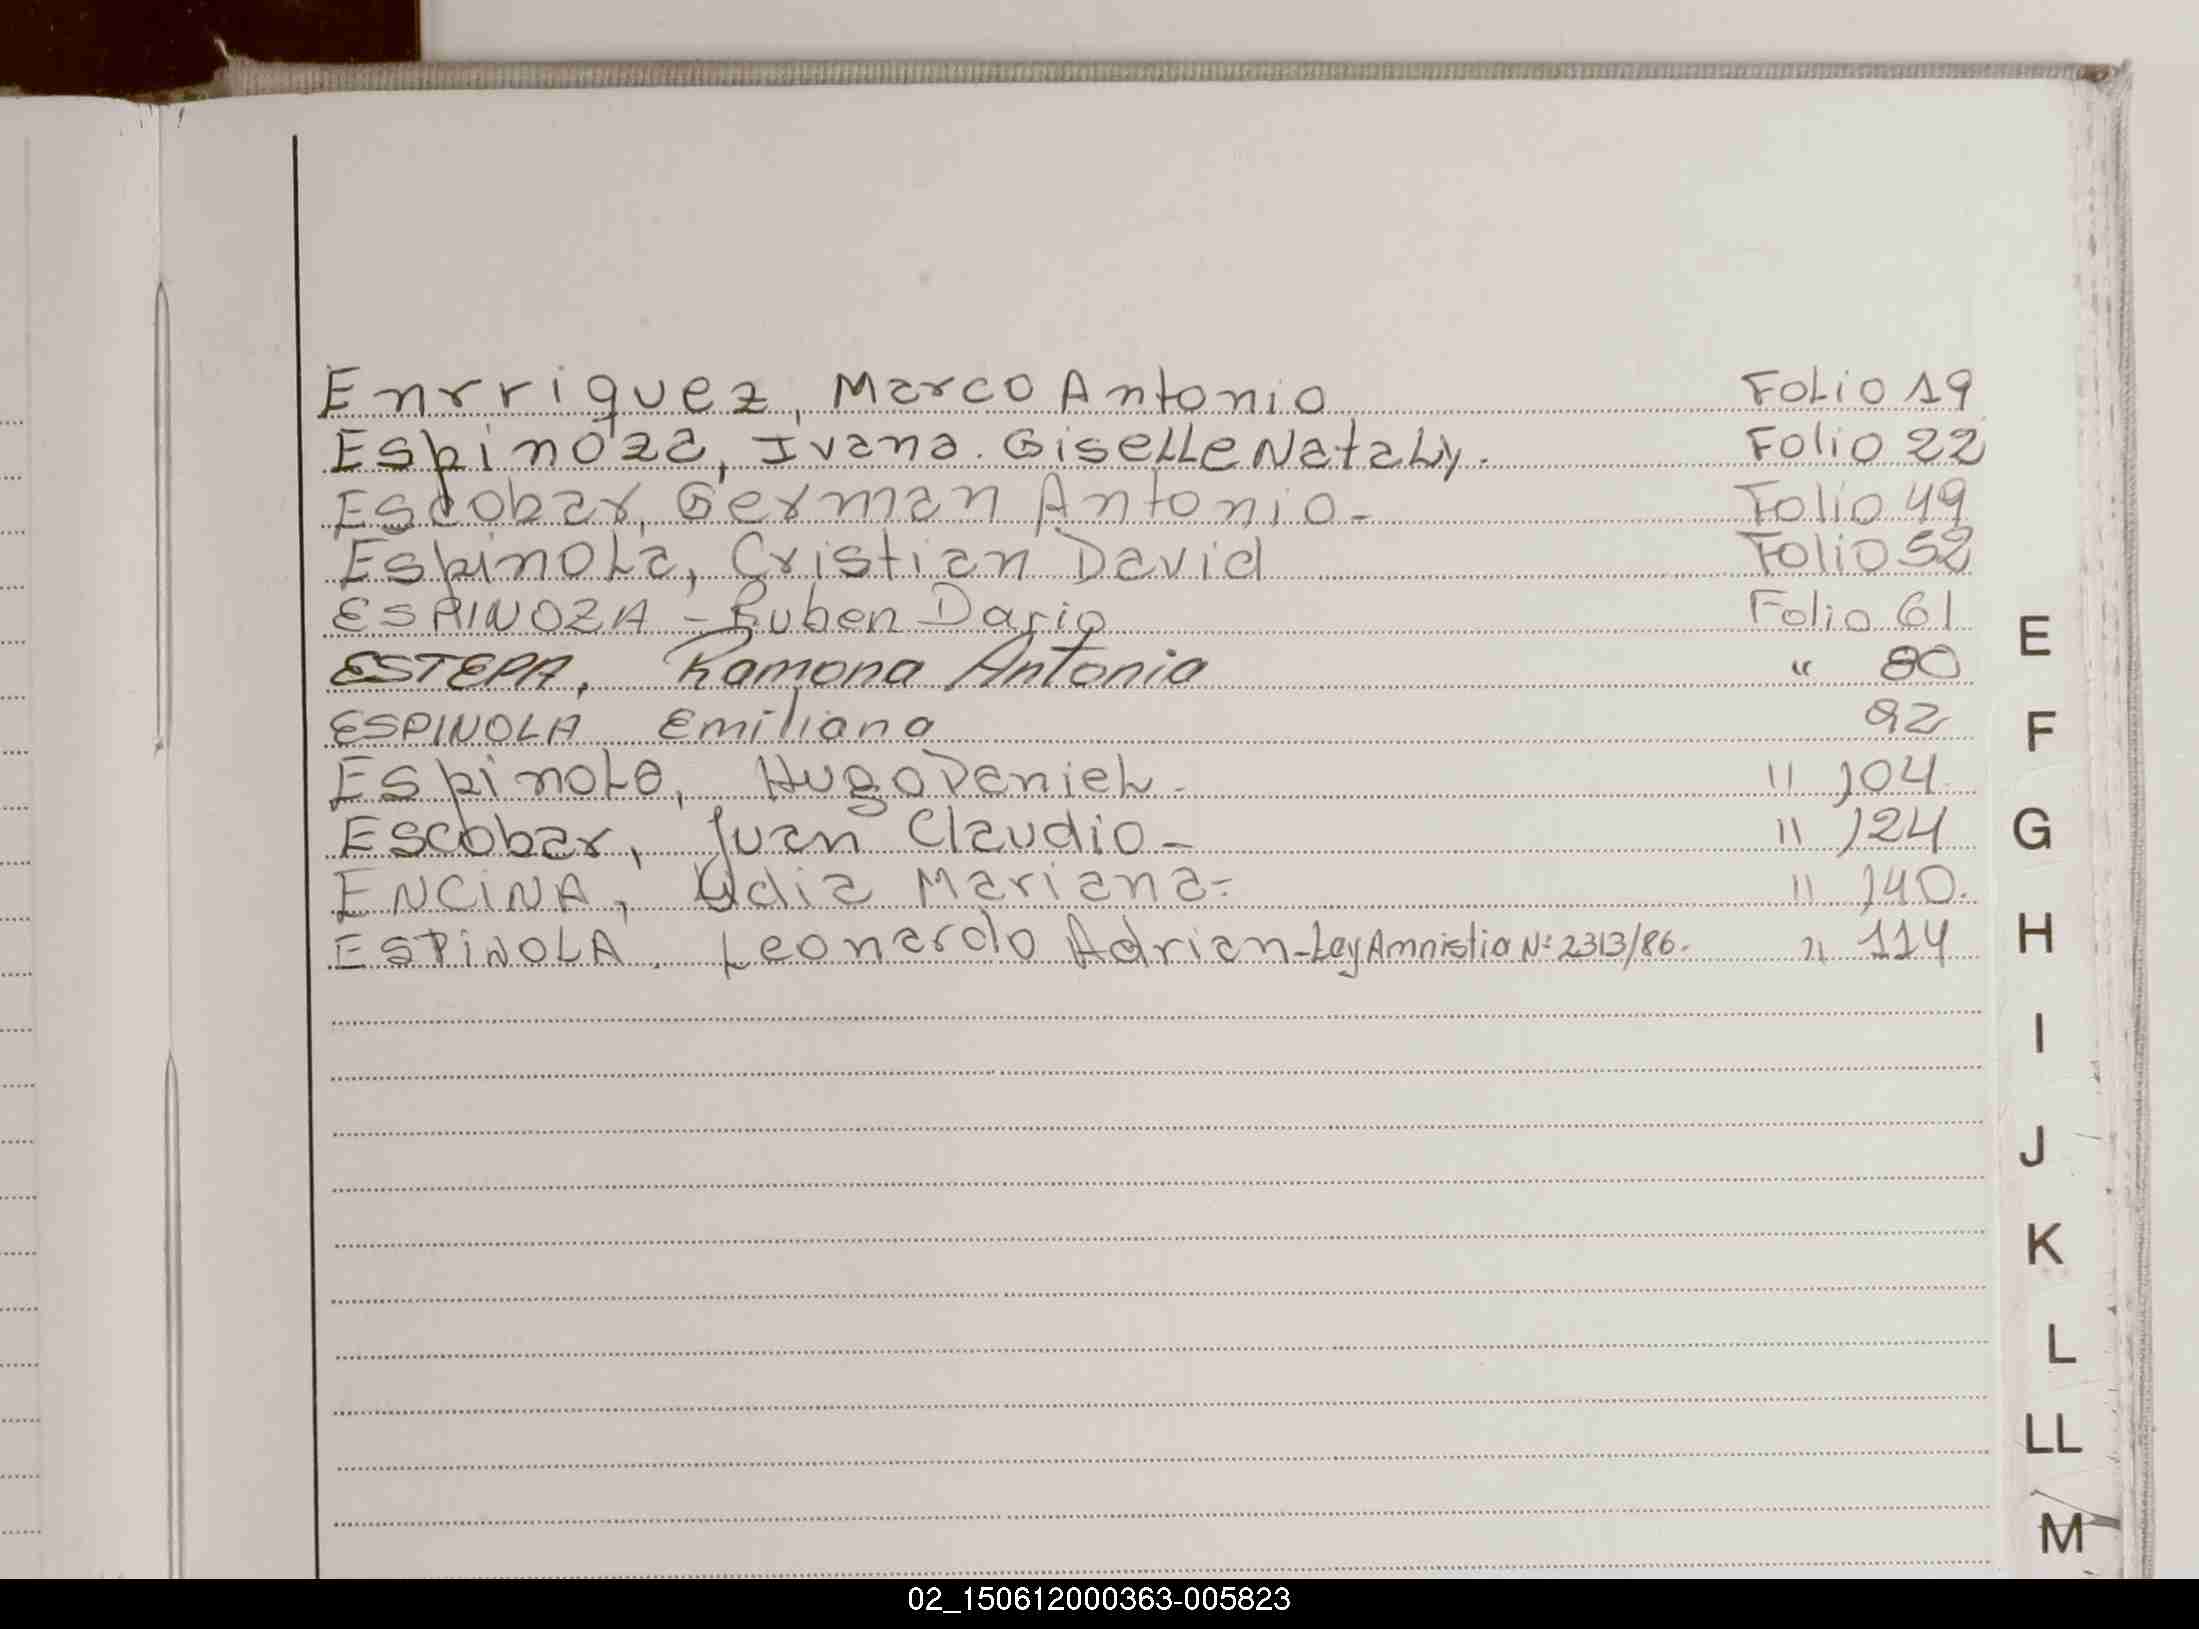 Enrriquez, Marco Antonio Folio 19
Espinoza, Ivana. Giselle Nataly. Folio 22
Escobar, German Antonio- Folio 49
Espinola, Cristian David Folio 52
ESPINOZA - Ruben Dario Folio 61
ESTEPA, Ramona Antonia " 80
ESPINOLA Emiliana 92
Espinola, Hugo Daniel- " 104.
Escobar, Juan Claudio- " 124
ENCINA, Mariana= " 140.
ESPINOLA. Leonardo Adrian-Ley Amnistia Nº 2313/86- " 114
E
F
G
H
I
J
K
L
LL
M
02_150612000363-005823